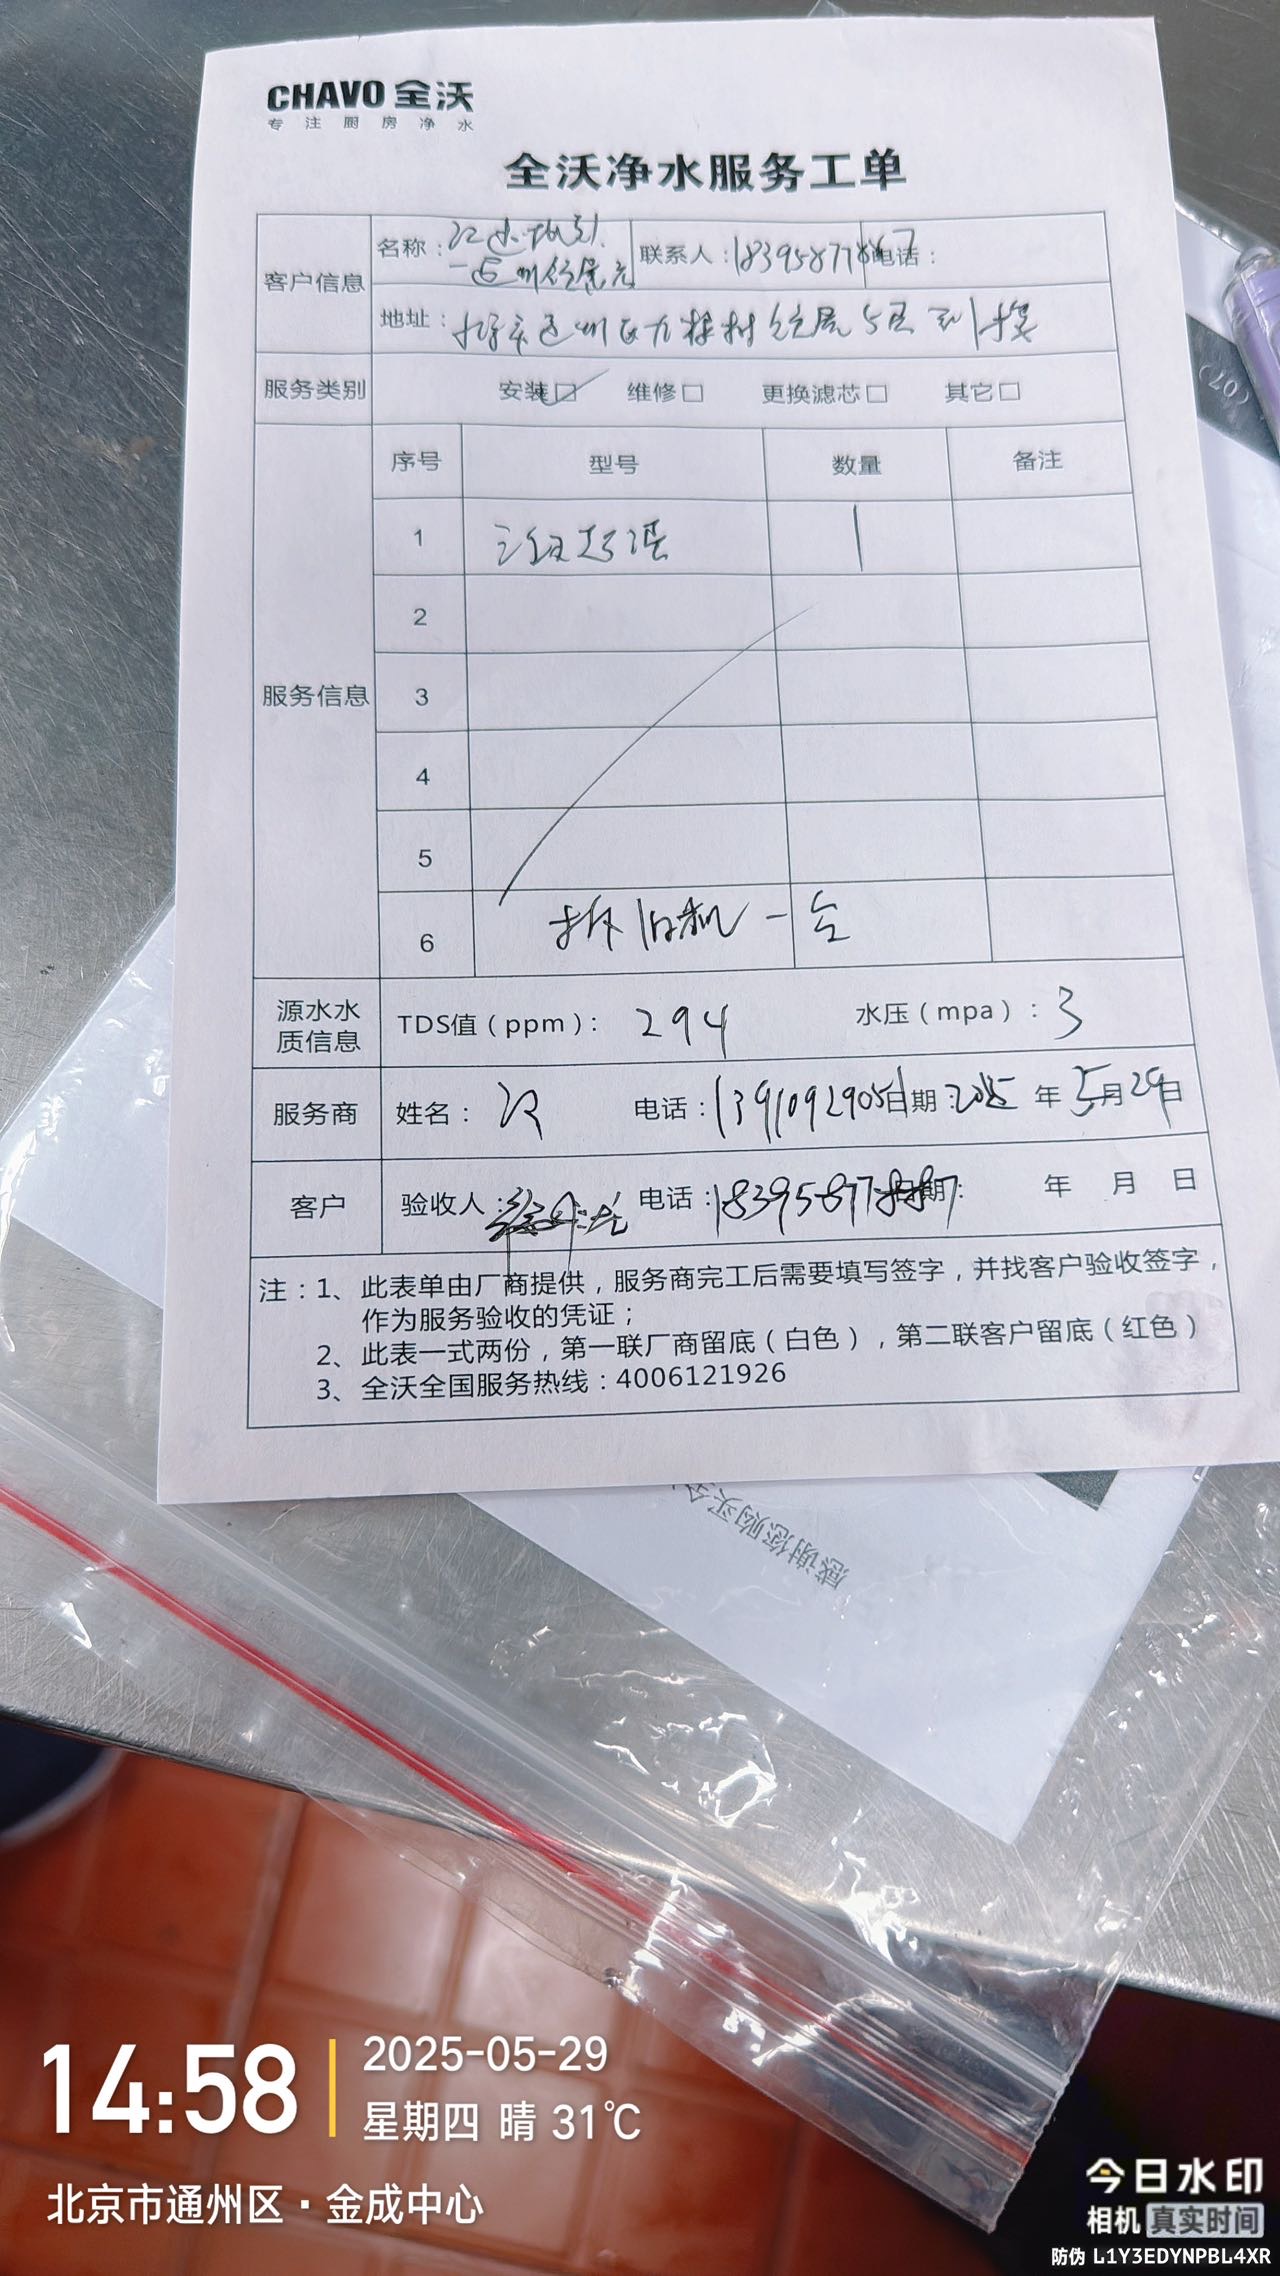 CHAVO 全沃
专注厨房净水
全沃净水服务工单
客户信息 名称： 联系人：18395877887 电话：
地址：
服务类别 安装☑ 维修□ 更换滤芯□ 其它□
服务信息 序号 型号 数量 备注
1 1
2
3
4
5
6 拆旧机一台
源水水质信息 TDS值（ppm）： 294 水压（mpa）：3
服务商 姓名： 电话：13910929051 日期：2025年5月29日
客户 验收人： 电话：18395877887 日期： 年 月 日
注：1、此表单由厂商提供，服务商完工后需要填写签字，并找客户验收签字，
作为服务验收的凭证；
2、此表一式两份，第一联厂商留底（白色），第二联客户留底（红色）
3、全沃全国服务热线：4006121926
感谢您购买
14:58
2025-05-29
星期四 晴 31℃
北京市通州区·金成中心
今日水印
相机 真实时间
防伪 L1Y3EDYNPBL4XR